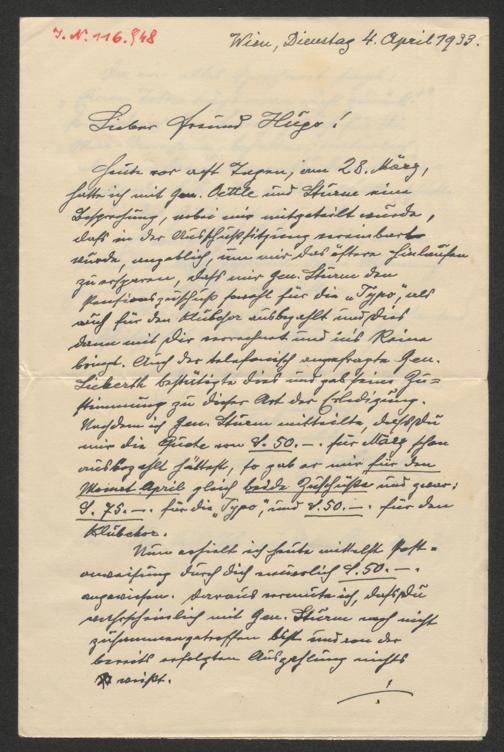 J. N. 116.848
Wien, Dienstag 4. April 1933.
Lieber Freund Hugo!
Heute vor acht Tagen, am 28. März,
hatte ich mit Gen. Oettle und Sturm eine
Besprechung, wobei mir mitgeteilt wurde,
daß in der Ausschußsitzung vereinbart
wurde, angeblich, um mir das öftere Hinlaufen
zu ersparen, daß mir Gen. Sturm den
Pensionszuschuß sowohl für die „Typo", als
auch für den Klubchor ausbezahlt und dies
dann mit Dir verrechnet und ins Reine
bringt. Auch der telefonisch angefragte Gen.
Lieberth bestätigte dies und gab seine Zu=
stimmung zu dieser Art der Erledigung.
Nachdem ich Gen. Sturm mitteilte, daß Du
mir die Quote von S. 50.–. für März schon
ausbezahlt hättest, so gab er mir für den
Monat April gleich beide Zuschüsse und zwar:
S. 75.–. für die „Typo", und S. 50.–. für den
Klubchor.
Nun erhielt ich heute mittelst Post=
anweisung durch Dich neuerlich S. 50.–.
angewiesen. Daraus vermute ich, daß Du
wahrscheinlich mit Gen. Sturm noch nicht
zusammengetroffen bist und von der
bereits erfolgten Auszahlung nichts
weißt.